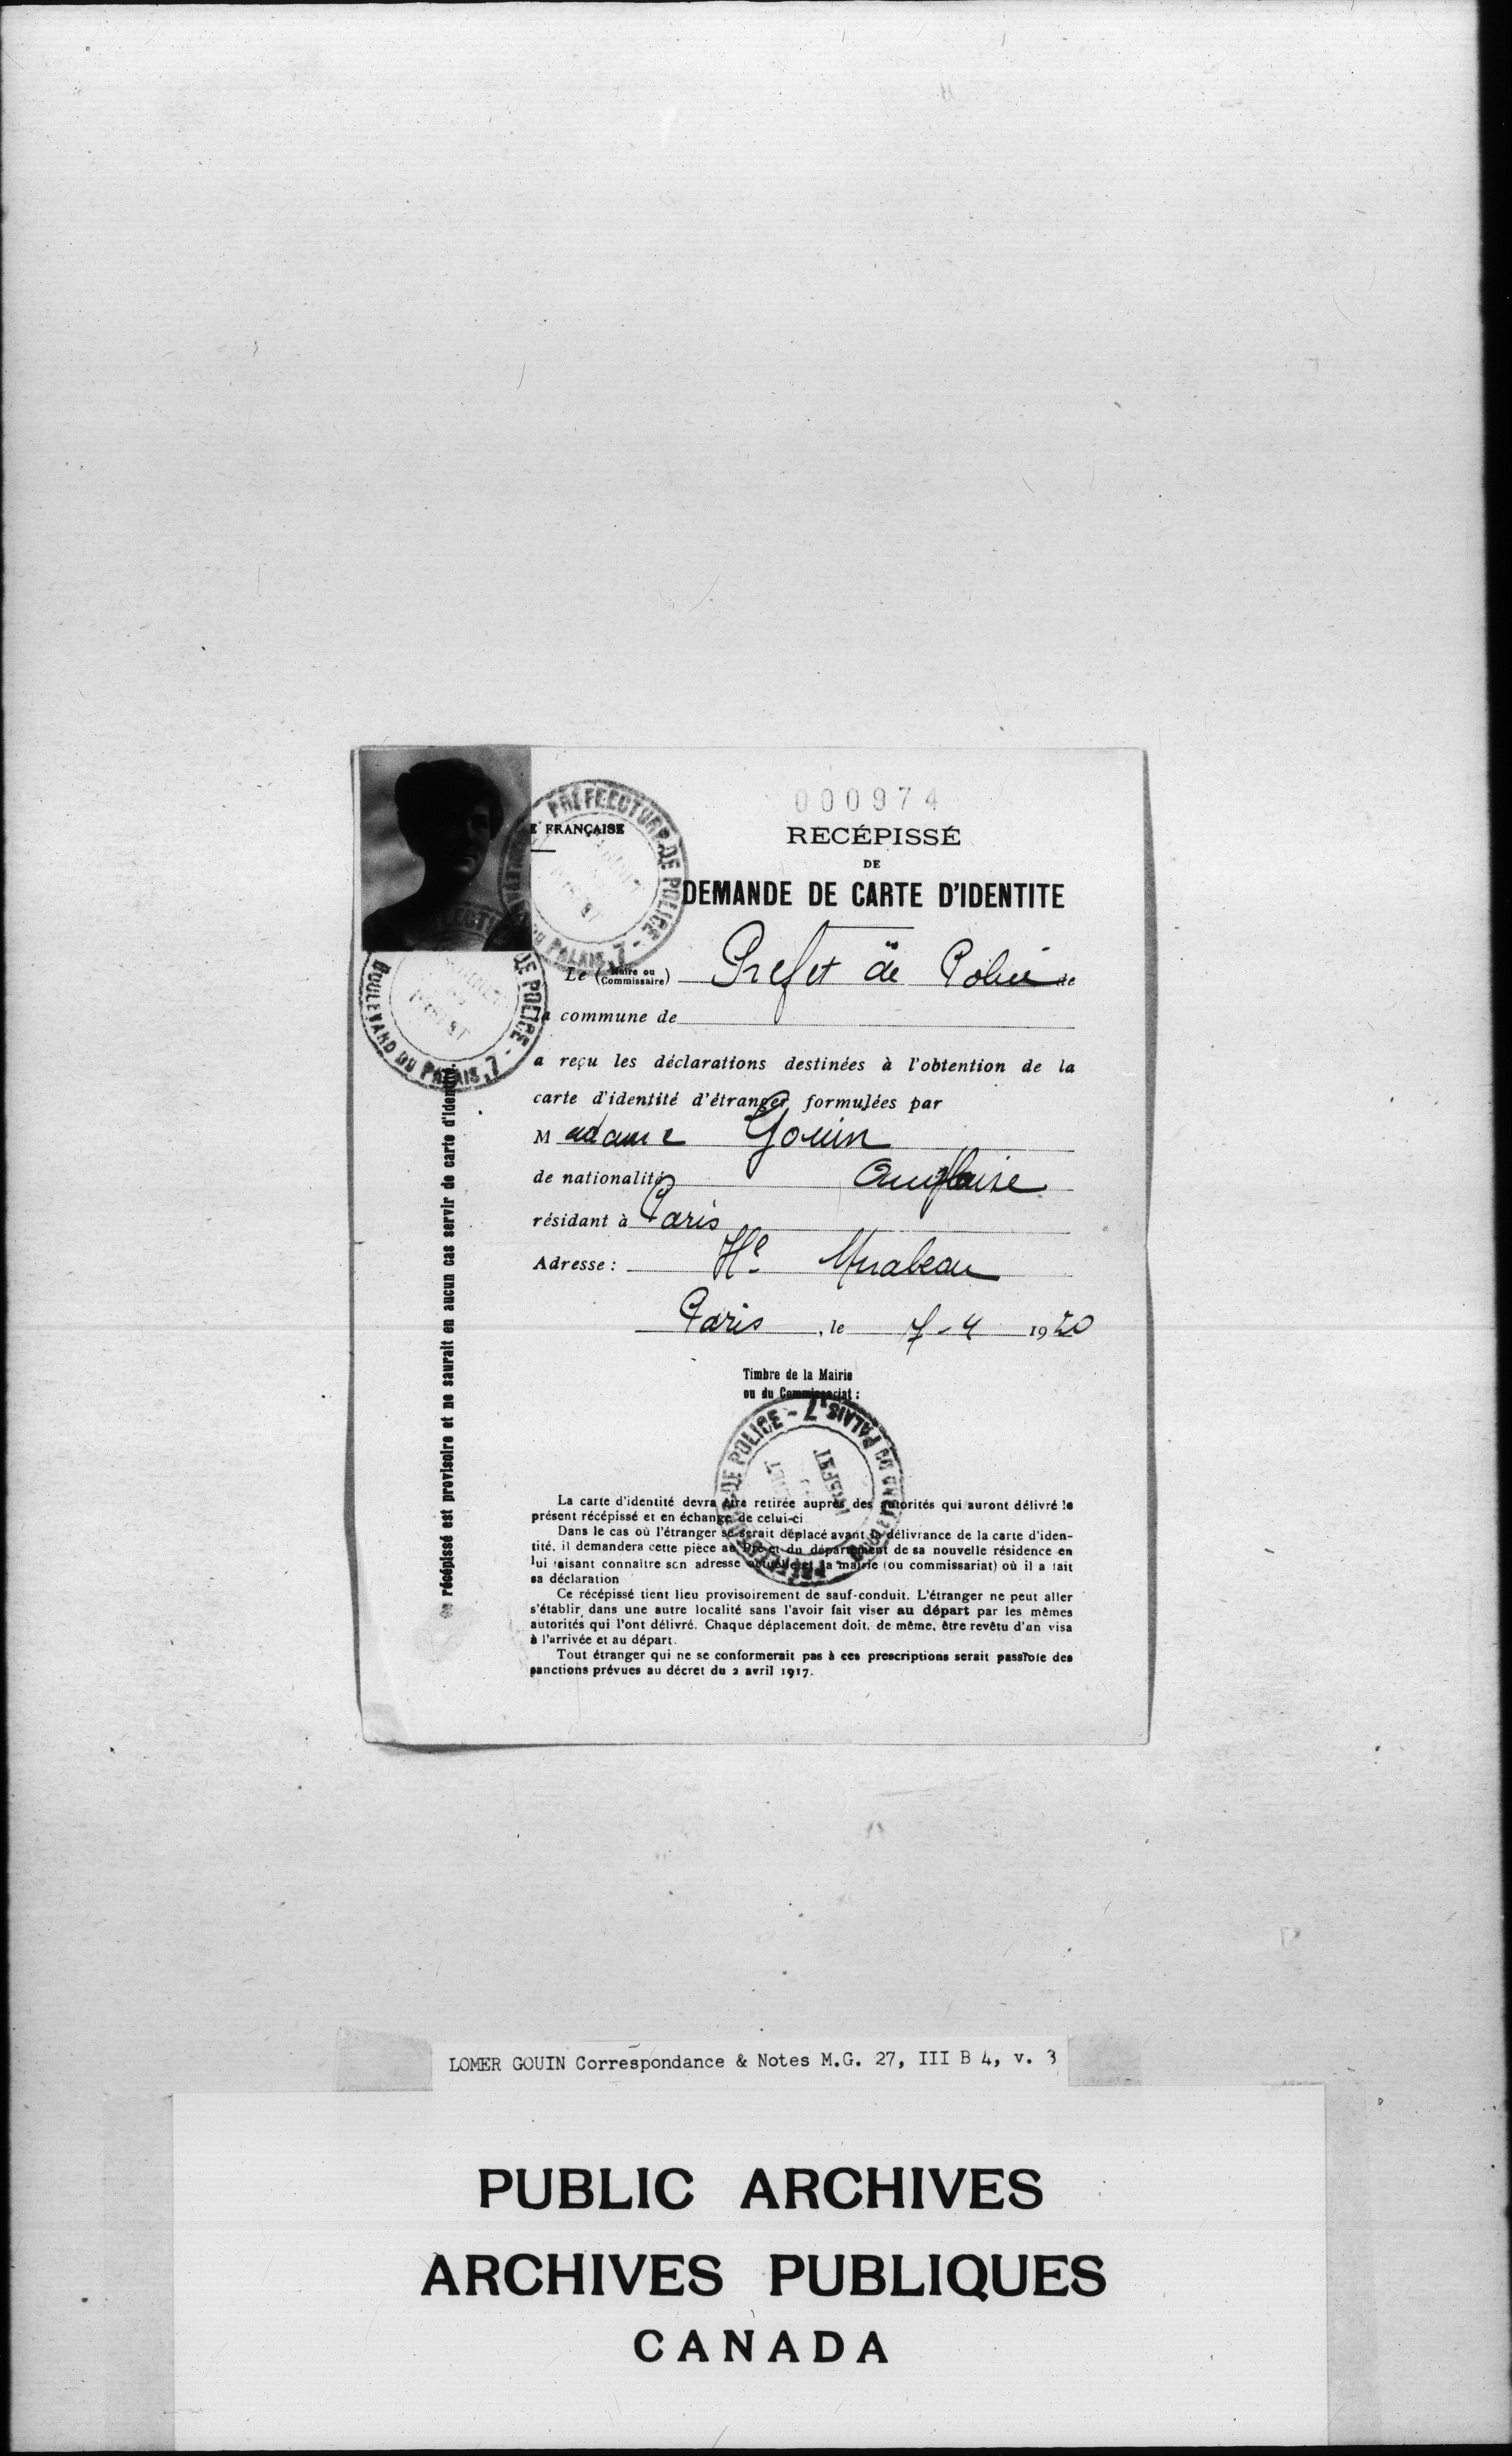 000974
E FRANÇAISE
RECÉPISSÉ
DE
DEMANDE DE CARTE D'IDENTITE
PRÉFECTURE DE POLICE - BOULEVARD DU PALAIS, 7
Le (Maire ou Commissaire) Prefet de Police de
la commune de
a reçu les déclarations destinées à l'obtention de la
carte d'identité d'étranger, formulées par
Madame Gouin
de nationalité Anglaise
résidant à Paris
Adresse : Hl Mirabeau
Paris, le 7-4 1920
Timbre de la Mairie
ou du Commissariat :
DE POLICE - BOULEVARD DU PALAIS, 7
La carte d'identité devra être retirée auprès des autorités qui auront délivré le
présent récépissé et en échange de celui-ci
Dans le cas où l'étranger se serait déplacé avant la délivrance de la carte d'iden-
tité, il demandera cette pièce au Préfet du département de sa nouvelle résidence en
lui faisant connaître son adresse actuelle et la mairie (ou commissariat) où il a fait
sa déclaration
Ce récépissé tient lieu provisoirement de sauf-conduit. L'étranger ne peut aller
s'établir dans une autre localité sans l'avoir fait viser au départ par les mêmes
autorités qui l'ont délivré. Chaque déplacement doit, de même, être revêtu d'un visa
à l'arrivée et au départ.
Tout étranger qui ne se conformerait pas à ces prescriptions serait passible des
sanctions prévues au décret du 2 avril 1917.
récépissé est provisoire et ne saurait en aucun cas servir de carte d'identité.
DE POLICE - BOULEVARD DU PALAIS, 7
LOMER GOUIN Correspondance & Notes M.G. 27, III B 4, v. 3
PUBLIC ARCHIVES
ARCHIVES PUBLIQUES
CANADA